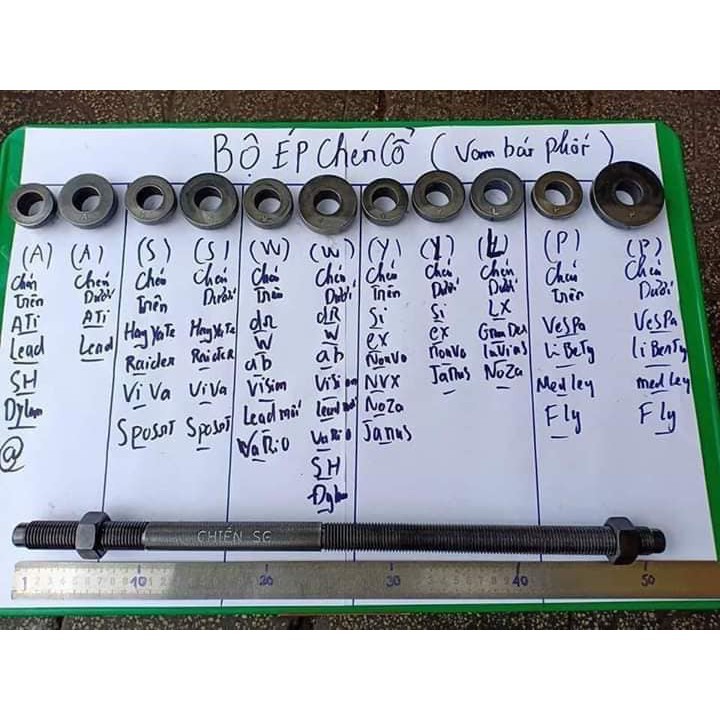 BỘ ÉP Chén Cổ (Vam bát phốt)
(A) (A) (S) (S) (W) (W) (Y) (Y) (L) (P) (P)
Chén Trên
ATi
Lead
SH
Dylan
@
Chén Dưới
ATi
Lead
Chén Trên
HayYaTe
Raider
ViVa
Sposat
Chén Dưới
HayYaTe
RaidTeR
ViVa
Sposat
Chén Trên
dR
W
ab
Vision
Lead mới
VaRiO
Chén Dưới
dR
W
ab
Vision
Lead mới
VaRiO
SH
Dylan
Chén Trên
Si
ex
Nouvo
NVX
NoZa
Janus
Chén Dưới
Si
ex
Nouvo
Janus
Chén Dưới
LX
GranDes
NoZa
Chén Trên
VesPa
LiBeTy
Medley
Fly
Chén Dưới
VesPa
liBerTy
medley
Fly
CHIẾN SG
1 10 20 30 40 50